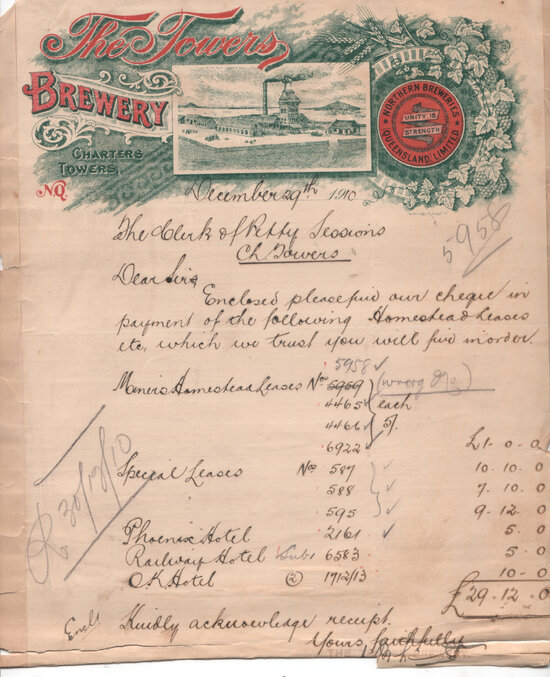 The Towers
BREWERY
CHARTERS
TOWERS
N.Q.
NORTHERN BREWERIES
QUEENSLAND, LIMITED
UNITY IS
STRENGTH
December 29th 1910
The Clerk of Petty Sessions
Ch Towers
5958
Dear Sir,
Enclosed please find our cheque in
payment of the following Homestead Leases
etc, which we trust you will find in order.
5958 ✓
Miners Homestead Leases Nos 5959 (wrong No)
4465 ✓ each
4466 ✓ 5/.
6922 ✓ £1 - 0 - 0
Special Leases No 587 ✓ 10. 10. 0
588 ✓ 7. 10. 0
595 ✓ 9. 12. 0
Phoenix Hotel 2161 ✓ 5. 0
Railway Hotel Subs 6583 5. 0
O.K Hotel (2) 1712/13 10. 0
£29. 12. 0
30/12/10
Encls Kindly acknowledge receipt.
Yours faithfully
THE